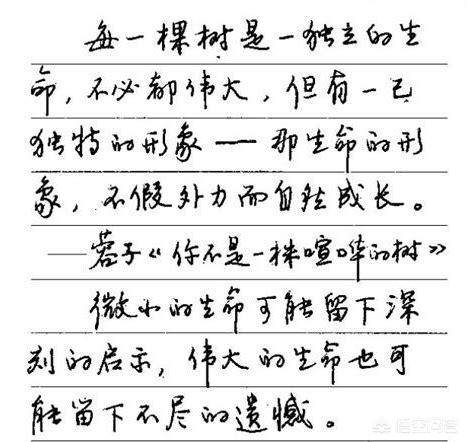 每一棵树是一独立的生
命，不必都伟大，但有一己
独特的形象——那生命的形
象，不假外力而自然成长。
——蓉子《你不是一株喧哗的树》
微小的生命可能留下深
刻的启示，伟大的生命也可
能留下不尽的遗憾。
悟空问答